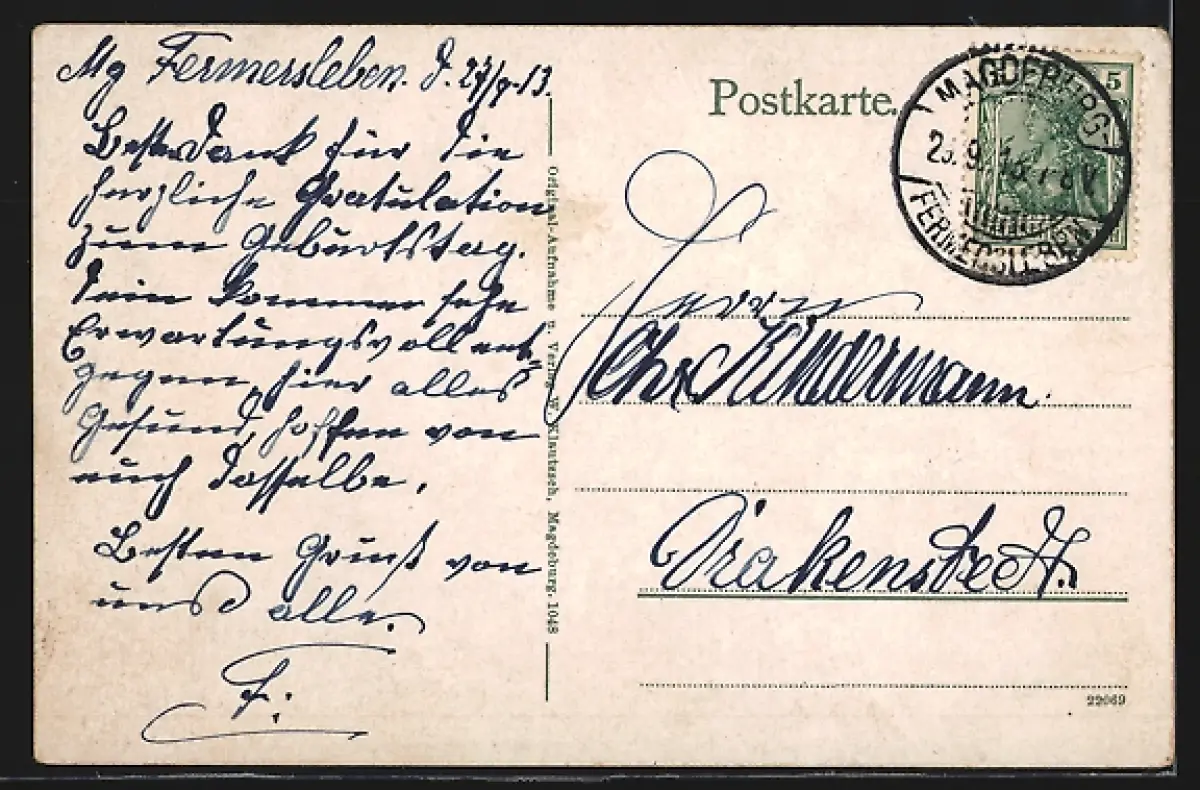 Mg Fermersleben. d. 27/9.13.
Besten Dank für die
herzliche Gratulation
zum Geburtstag.
Dein Kommen sehe
Erwartungsvoll ent-
gegen, hier alles
Gesund, hoffen von
euch dasselbe.
Besten Gruß von
uns alle.
F.
Original-Aufnahme u. Verlag W. Klautzsch, Magdeburg. 1048
Postkarte.
MAGDEBURG
FERMERSLEBEN
5
Herrn
Chr Kindermann
Drakenstedt.
22069